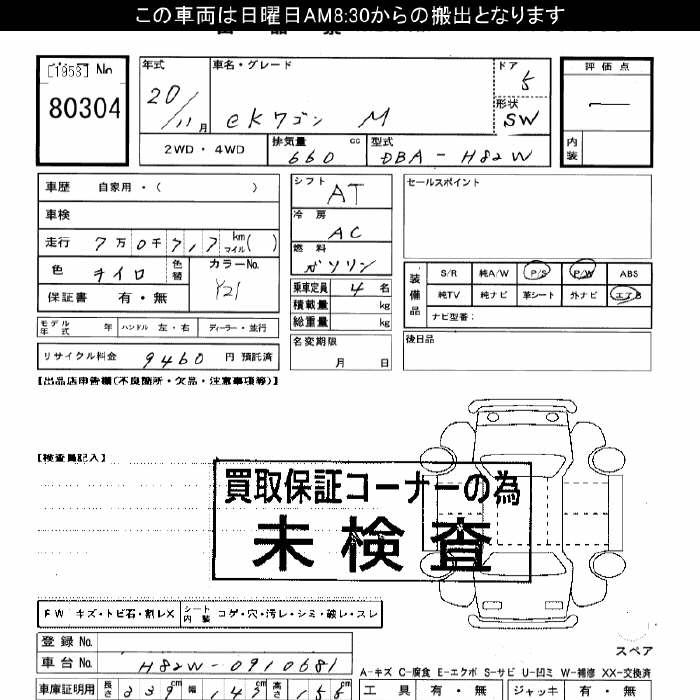 この車両は日曜日AM8:30からの搬出となります
[1958] No
80304
年式
20/11月
車名・グレード
eKワゴン M
ドア
5
形状
SW
評価点
内装
2WD・4WD
排気量
660 cc
型式
DBA-H82W
車歴 自家用・( )
車検
走行 7万0千717 km マイル( )
色 チイロ
色替
カラーNo.
Y21
保証書 有・無
モデル年式 年 ハンドル 左・右 ディーラー・並行
リサイクル料金 9460 円 預託済
シフト
AT
冷房
AC
燃料
ガソリン
乗車定員 4名
積載量 kg
総重量 kg
名変期限
月 日
セールスポイント
装備品
S/R 純A/W P/S P/W ABS
純TV 純ナビ 革シート 外ナビ エアB
ナビ型番:
後日品
【出品店申告欄(不良箇所・欠品・注意事項等)】
【検査員記入】
買取保証コーナーの為
未検査
FW キズ・トビ石・割レX シート内装 コゲ・穴・汚レ・シミ・破レ・スレ
登録No.
車台No. H82W-0910681
スペア
A-キズ C-腐食 E-エクボ S-サビ U-凹ミ W-補修 XX-交換済
車庫証明用 長さ 339cm 幅 147cm 高さ 155cm
工具 有・無 ジャッキ 有・無